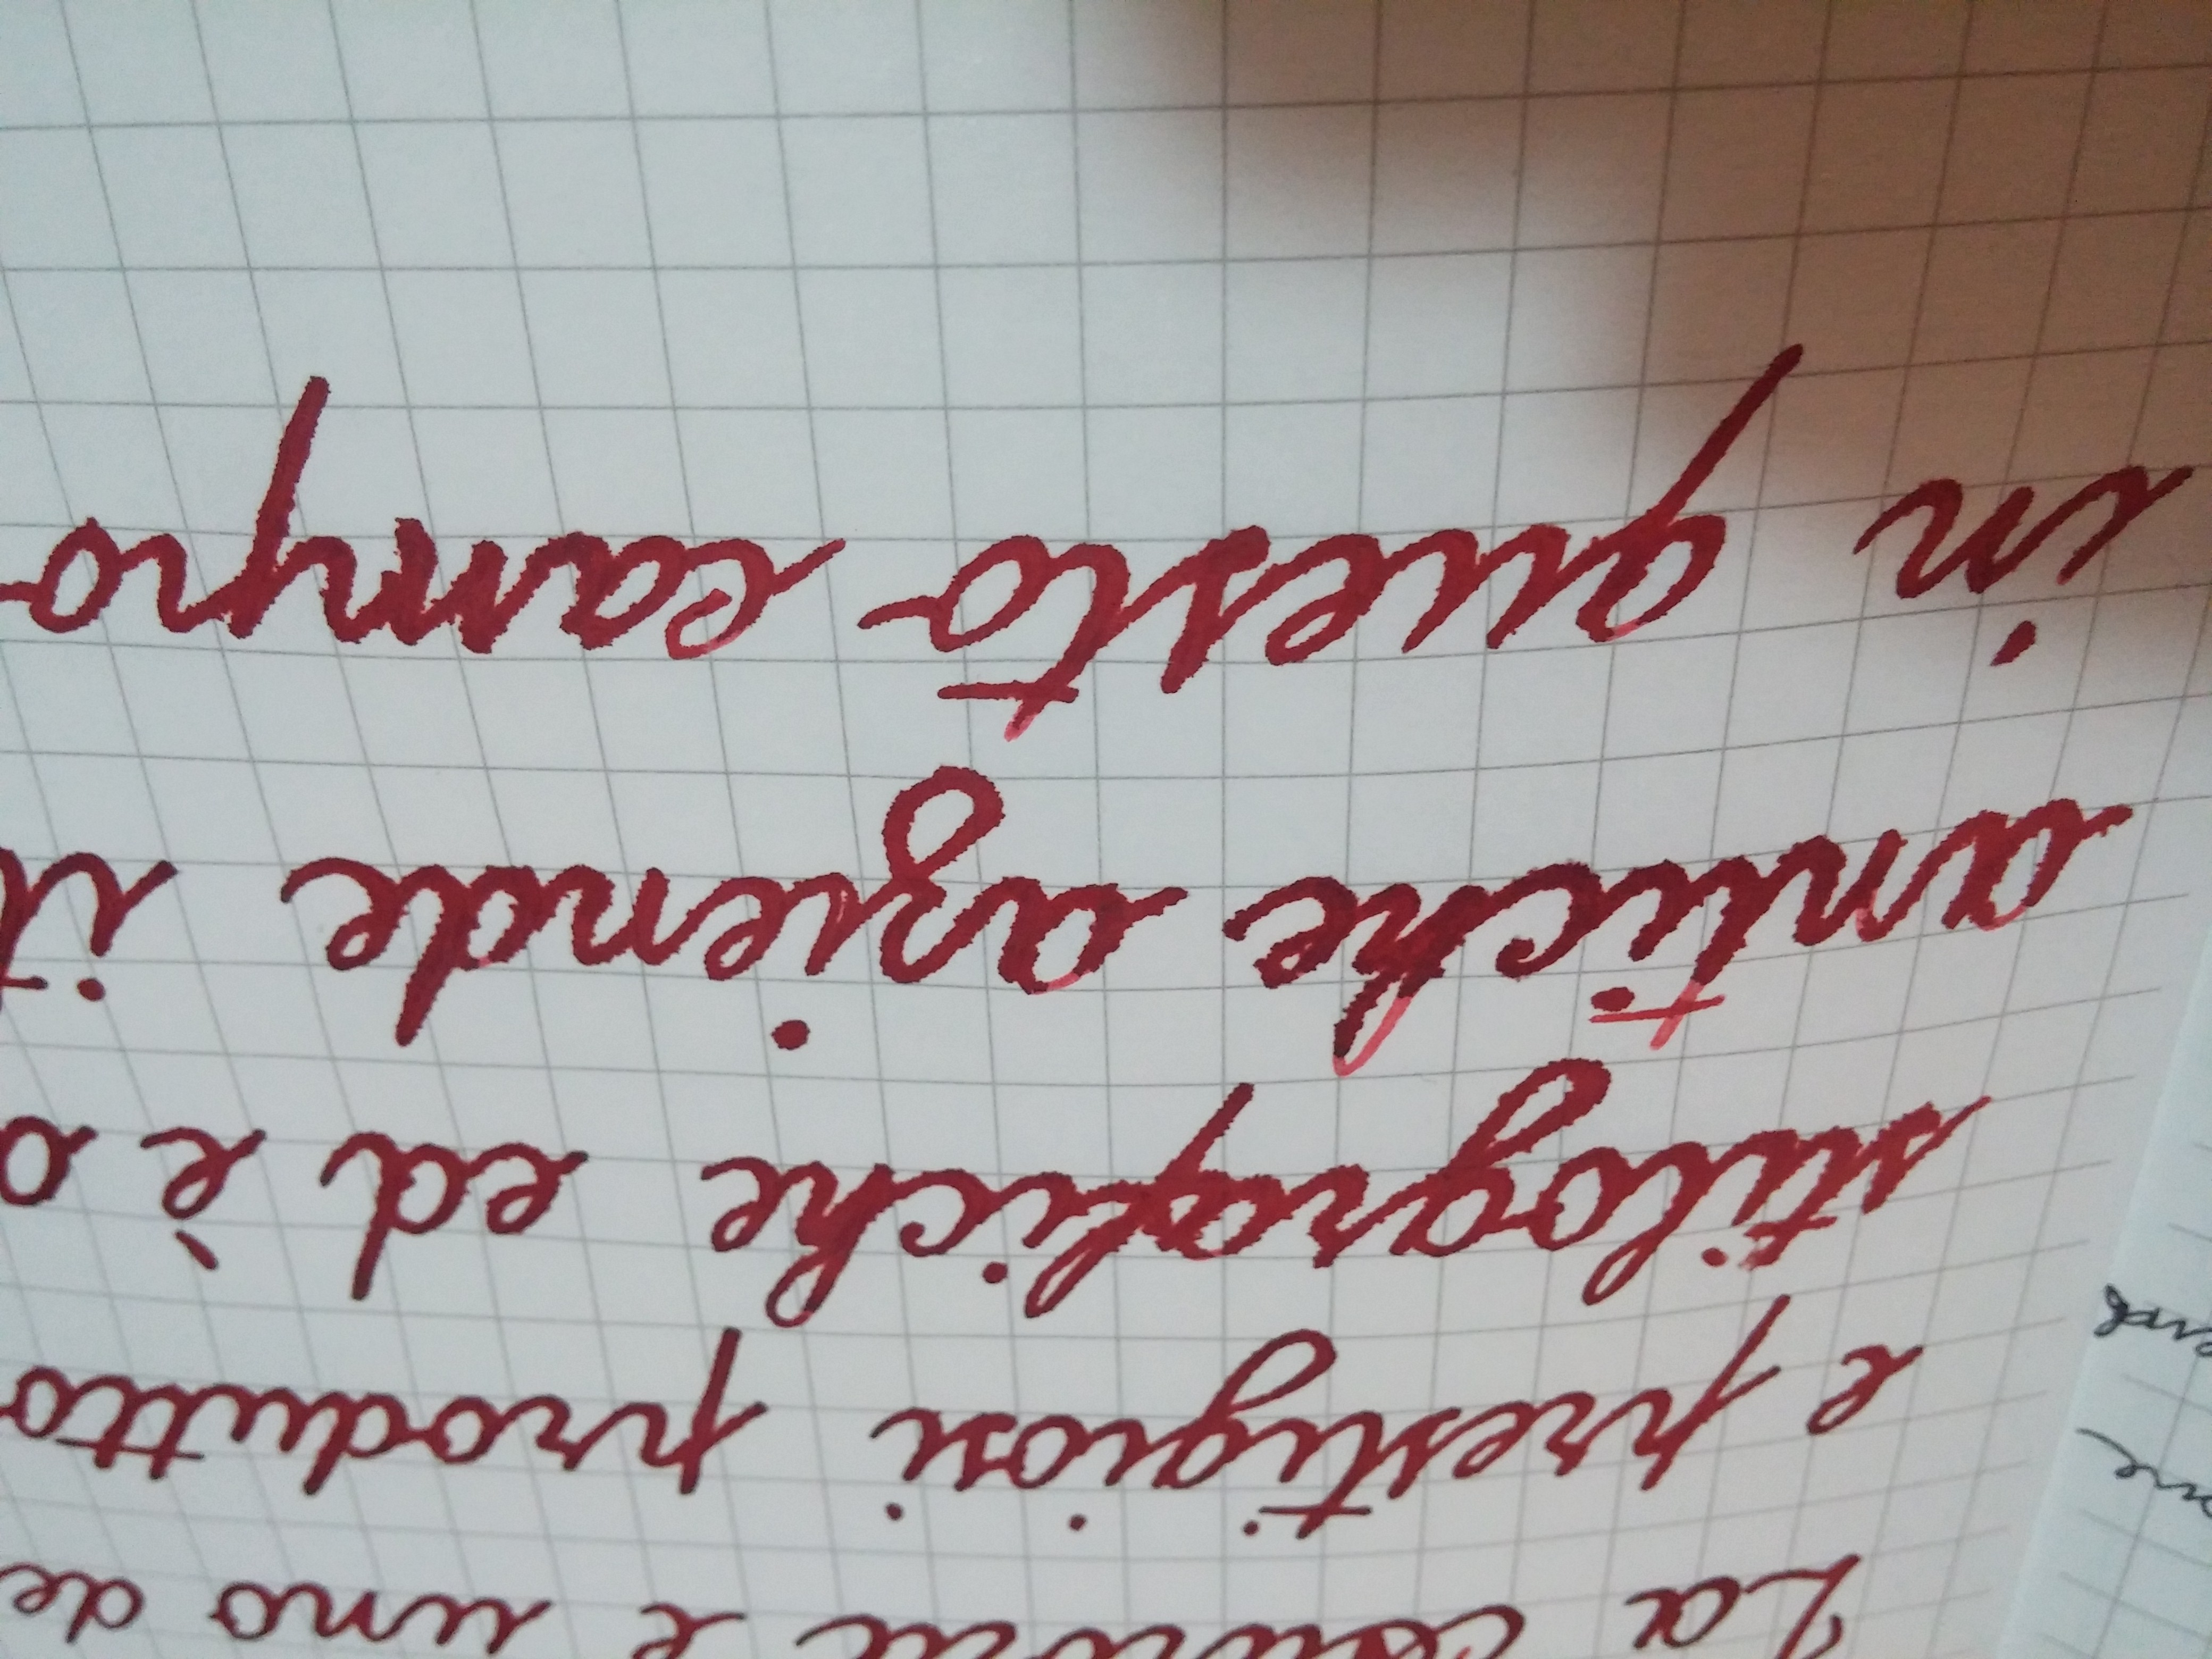 La e uno de
e prestigiosi produtto
stilografiche ed è o
antiche aziende it
in questo campo